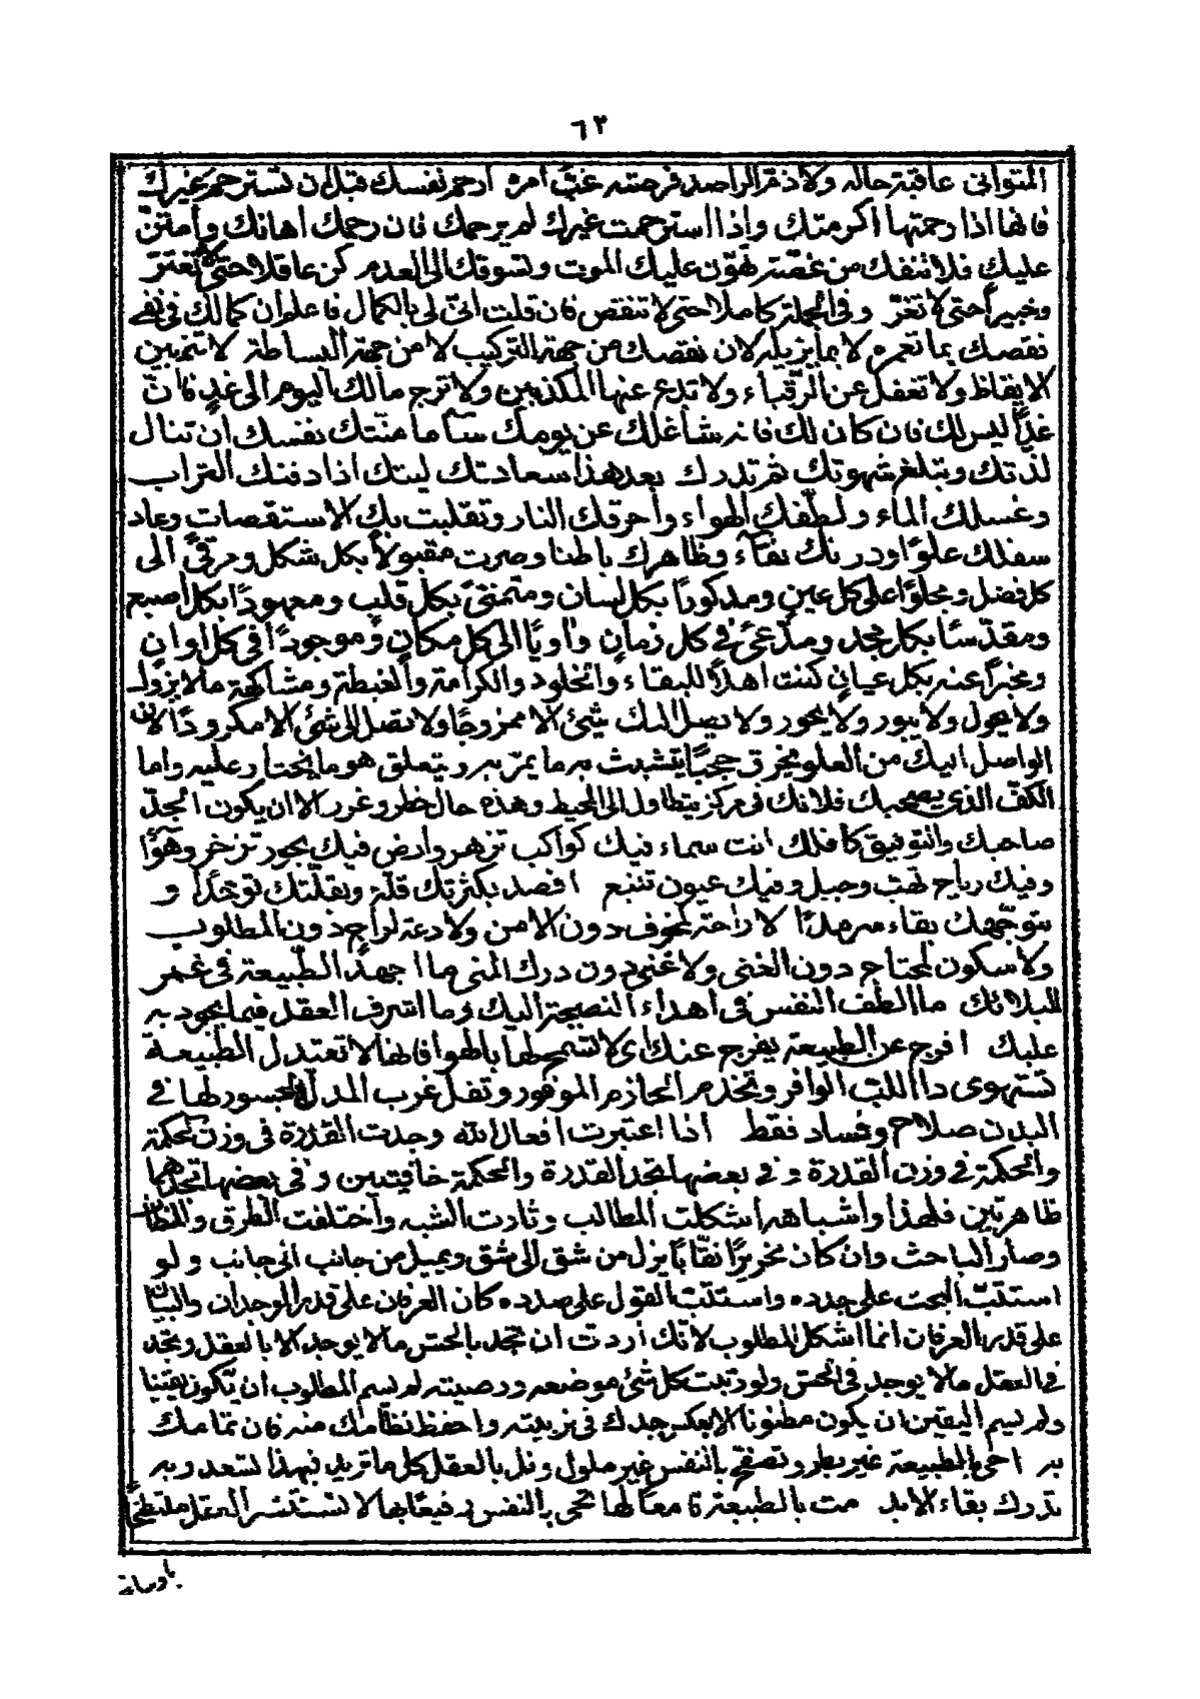 ٦٣
المتوانى عاقبة حاله ولا ذم الراصد فرصته غب امره ارحم نفسك قبل ان تسترحم غيرك
فانها اذا رحمتها اكرمتك واذا استرحمت غيرك لم يرحمك فان رحمك اهانك وامتن
عليك فلا تنفك من غصة تهون عليك الموت وتسوقك الى العدم كن عاقلا حتى لا تغتر
وخبيرا حتى لا تغر وفى الجملة كاملا حتى لا تنقص فان قلت انى لى بالكمال فاعلم ان كمالك فى نفى
نقصك بما تعمره لا بما يزيله لان نقصك من جهة التركيب لا من جهة البساطة لا تستهين
الايقاظ ولا تغفل عن الرقباء ولا تدع عنها المكذبين ولا ترج مالك باليوم الى غد فان
غدا ليس لك فان كان لك فانه شاغلك عن يومك ما منتك نفسك ان تنال
لذتك وتبلغ شهوتك ثم تدرك بعد هذا سعادتك ليتك اذا دفنك التراب
وغسلك الماء ولطفك الهواء واحرقك النار وتقلبت بك الاستقصات وعاد
سفلك علوا ودرنك نقاء وظاهرك باطنا وصرت مقبولا بكل شكل ومرقى الى
كل فضل ومجلوا على كل عين ومذكورا بكل لسان ومتمنى بكل قلب ومعهودا بكل اصبع
ومقدسا بكل مجد ومدعى فى كل زمان واويا الى كل مكان وموجودا فى كل اوان
ومخبرا عنه بكل عيان كنت اهلا للبقاء والخلود والكرامة والغبطة ومشاكهة ما لا يزول
ولا يحول ولا يبور ولا يحور ولا يصل اليك شئ الا ممزوجا ولا تصل الى شئ الا مكرودا لان
الواصل اليك من العلو يخرق حجبا يتشبث به ما يمر به ويتعلق هو ما يجتاز عليه واما
الكف الذى يصحبك فلانك فى مركز يتطاول الى المحيط وهذه حال خطر وغرر الا ان يكون الجد
صاحبك والتوفيق كافلك انت سماء فيك كواكب تزهر وارض فيك بحور تزخر وهوا
وفيك رياح تهب وجبل وفيك عيون تنبع اقصد بكثرتك قلة وبقلتك توحدا و
بتوجهك بقاء سرمدا لا راحة لمخوف دون الامن ولا دعة لراج دون المطلوب
ولا سكون لمحتاج دون الغنى ولا غنى دون درك المنى ما اجهد الطبيعة فى غمر
للبلائك ما الطف النفس فى اهداء النصيحة اليك وما اشرف العقل فيما يجود به
عليك افرج عن الطبيعة يفرج عنك اى لا تسمح لها بالهوا فانها لا تعتدل الطبيعة
تستهوى ذا اللب الوافر وتخذم الحازم الموفور وتفل غرب المدل الجسور لها فى
البدن صلاح وفساد فقط اذا اعتبرت افعال الله وجدت القدرة فى وزن الحكمة
والحكمة فى وزن القدرة وفى بعضها تجد القدرة والحكمة خافيتين وفى بعضها تجدهما
ظاهرتين فلهذا واشباهه اشكلت المطالب وثارت الشبه واختلفت الطرق والنظار
وصار الباحث وان كان نحريرا نقابا يزل من شق الى شق ويميل من جانب الى جانب ولو
استتب البحث على جدده واستتب القول على صدده كان العرفان على قدر الوجدان والبيان
على قدر العرفان انما اشكل المطلوب لانك اردت ان تجد بالحس ما لا يوجد الا بالعقل وتجد
فى العقل ما لا يوجد فى الحس ولو رتبت كل شئ موضعه ورصيته لم يسم المطلوب ان يكون يقينا
ولم يسم اليقين ان يكون مظنونا لا بعكس جدك فى تربيته واحفظ نظامك منه فان تمامك
به احى بالطبيعة غير بطر وتصفح بالنفس غير ملول ونل بالعقل كل ما تريد فبهذا تسعد وبه
تدرك بقاء الابد مت بالطبيعة قامعا لها تحى بالنفس رفيعا بها لا تستشر العقل ملتطخا